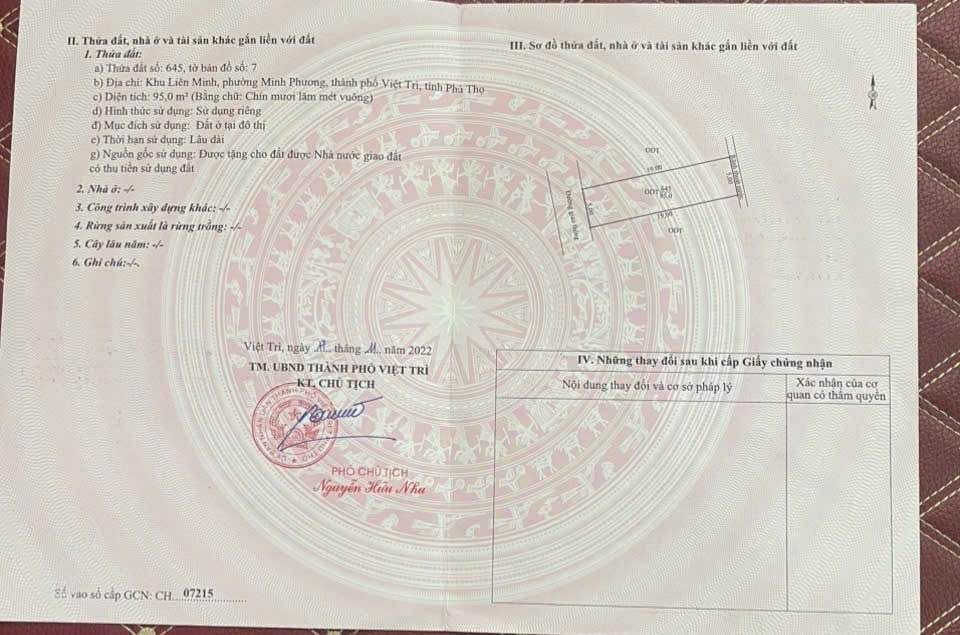 II. Thửa đất, nhà ở và tài sản khác gắn liền với đất
1. Thửa đất:
a) Thửa đất số: 645, tờ bản đồ số: 7
b) Địa chỉ: Khu Liên Minh, phường Minh Phương, thành phố Việt Trì, tỉnh Phú Thọ
c) Diện tích: 95,0 m² (Bằng chữ: Chín mươi lăm mét vuông)
d) Hình thức sử dụng: Sử dụng riêng
đ) Mục đích sử dụng: Đất ở tại đô thị
e) Thời hạn sử dụng: Lâu dài
g) Nguồn gốc sử dụng: Được tặng cho đất được Nhà nước giao đất
có thu tiền sử dụng đất
2. Nhà ở: -/-
3. Công trình xây dựng khác: -/-
4. Rừng sản xuất là rừng trồng: -/-
5. Cây lâu năm: -/-
6. Ghi chú:-/-
Việt Trì, ngày tháng 11 năm 2022
TM. UBND THÀNH PHỐ VIỆT TRÌ
KT. CHỦ TỊCH
PHÓ CHỦ TỊCH
Nguyễn Hữu Nhu
Số vào sổ cấp GCN: CH 07215
III. Sơ đồ thửa đất, nhà ở và tài sản khác gắn liền với đất
ODT
19.00
5.00
ODT 645
95.0
Đường giao thông
5.00
19.00
ODT
IV. Những thay đổi sau khi cấp Giấy chứng nhận
Nội dung thay đổi và cơ sở pháp lý
Xác nhận của cơ
quan có thẩm quyền